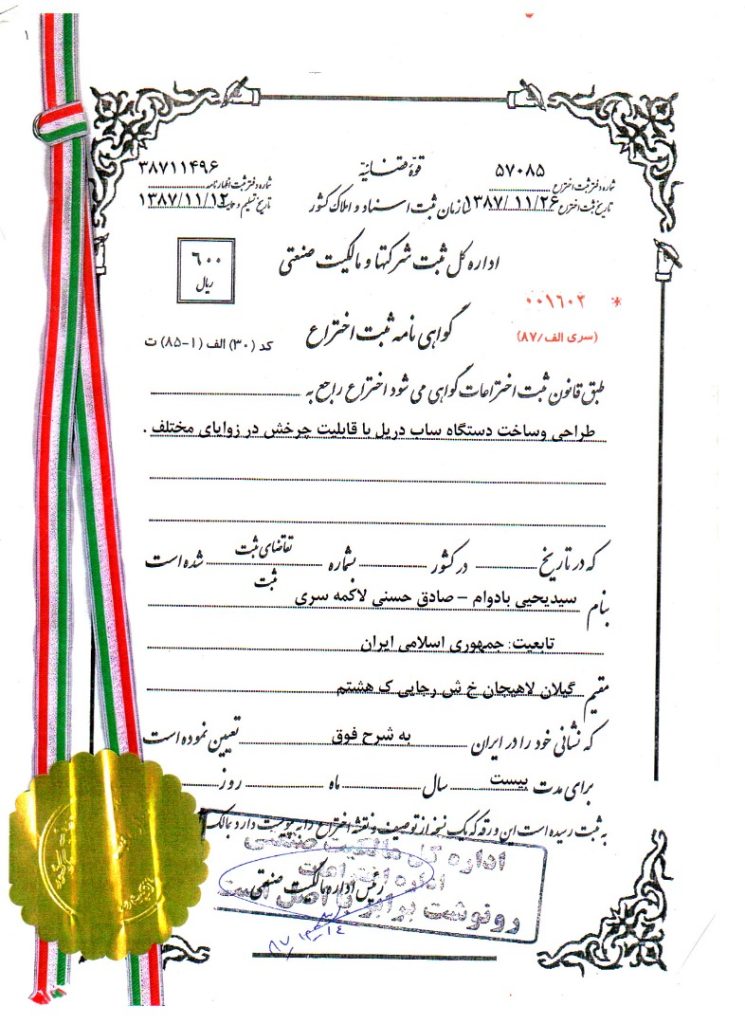 ۱
۳۸۷۱۱۴۹۶ قوهٔ قضائیه ۵۷۰۸۵
شماره دفتر ثبت اظهارنامه شماره دفتر ثبت اختراع
تاریخ ثبت اختراع ۱۳۸۷/۱۱/۲۶ سازمان ثبت اسناد و املاک کشور تاریخ تسلیم ۱۳۸۷/۱۱/۱۲
اداره کل ثبت شرکتها و مالکیت صنعتی
۶۰۰
ریال
* ۰۰۱۶۰۲
(سری الف/۸۷)
گواهی نامه ثبت اختراع
کد (۳۰) الف (۱-۸۵) ت
طبق قانون ثبت اختراعات گواهی می شود اختراع راجع به
طراحی وساخت دستگاه ساب دریل با قابلیت چرخش در زوایای مختلف .
که در تاریخ در کشور بشماره تقاضای ثبت شده است
ثبت
بنام سیدیحیی بادوام – صادق حسنی لاکمه سری
تابعیت: جمهوری اسلامی ایران
مقیم گیلان لاهیجان خ ش رجایی ک هشتم
که نشانی خود را در ایران به شرح فوق تعیین نموده است
برای مدت بیست سال ماه روز
به ثبت رسیده است این ورقه که یک نسخه از توصیف و نقشه اختراع را به پیوست دارد بمالک
اداره کل مالکیت صنعتی
اداره اختراعات
رئیس اداره مالکیت صنعتی
رونوشت برابر با اصل است